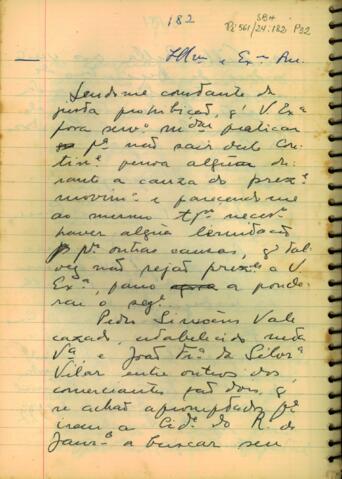 182
SBH
Pi 561/24.182 P22
Illmo e Exmo Snr.
Sendo-me constante da
justa prohibição, q' V. Exª
fora servº mdar praticar
pª não sair deste Con-
tinº pessoa algũa du-
rante a cauza do prezº
movimº e parecendo-me
ao mesmo tpº necesº
haver algũa
pª outras cauzas, q' tal-
vez não sejão prezes a V.
Exª, passo a ponde-
rar o segº
Pedro Simoens Vale
cazado, estabelecido nesta
Vª, e João Frº da Silvª
Vilar entre outros dos
comerciantes são dous, q'
se achão apromptados pª
irem a Cidº do R. de
Janrº a buscar seu